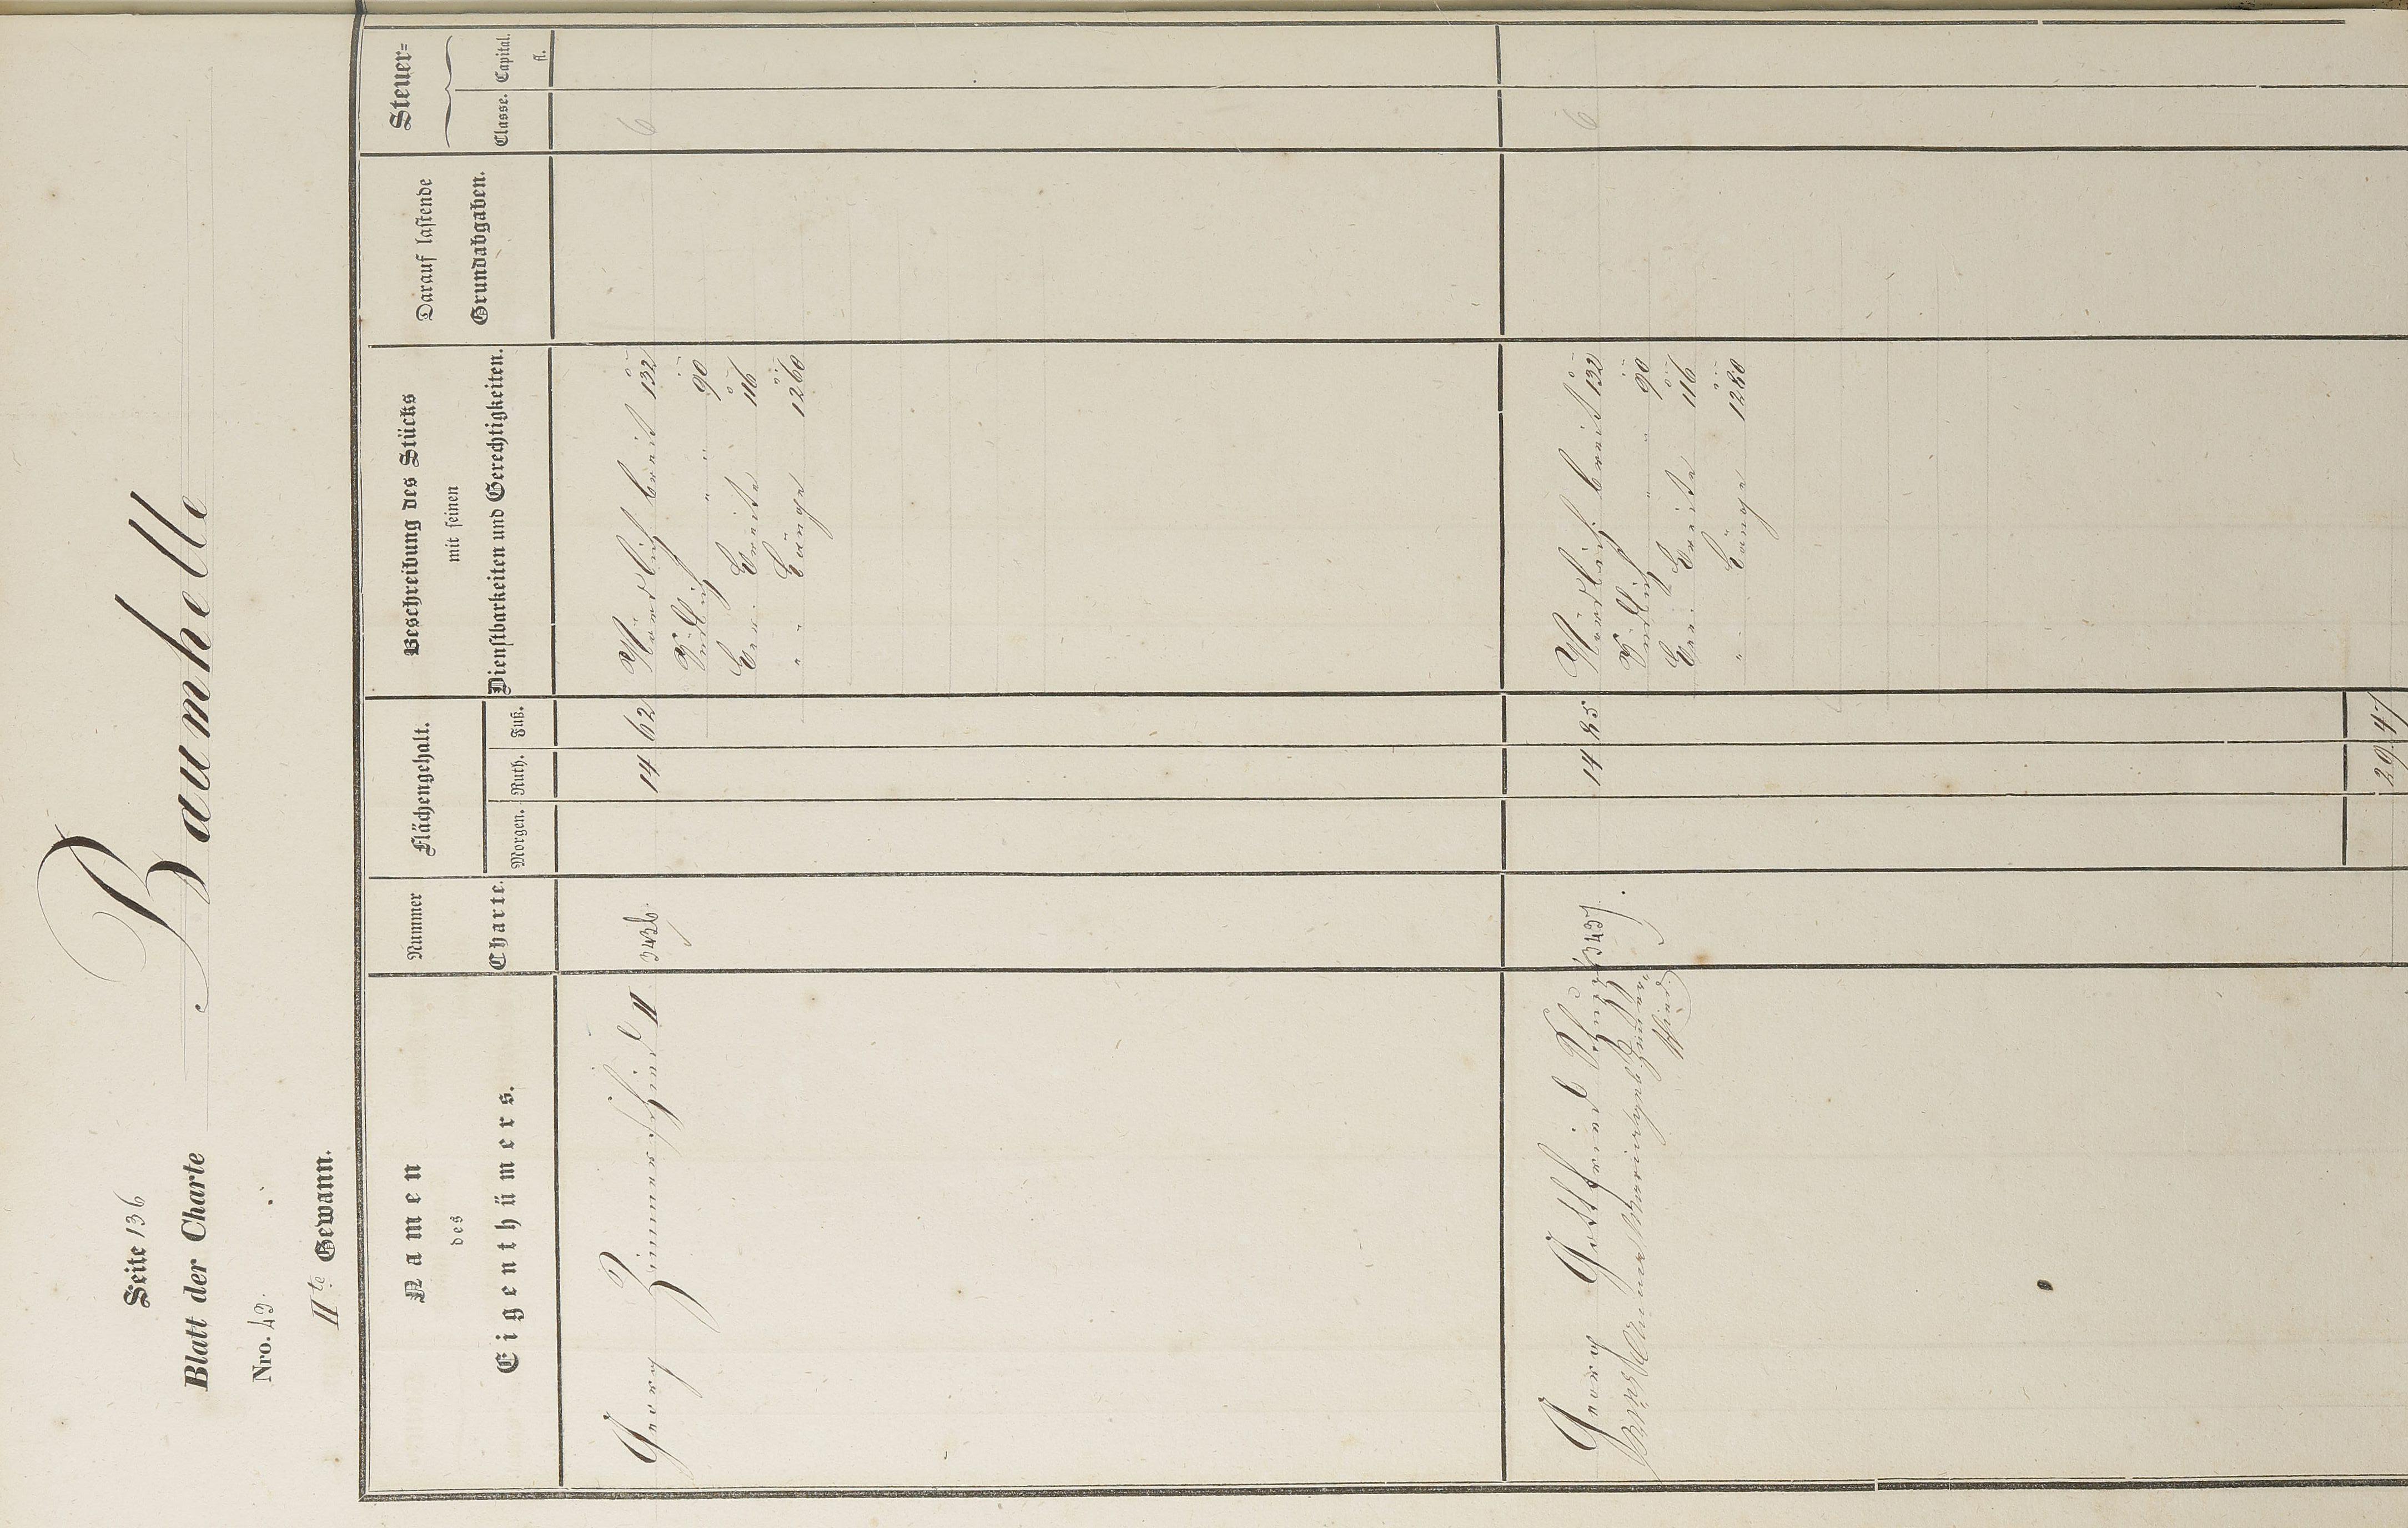 Seite 136
Baumhelle
Blatt der Charte
Nro. 42.
IIte Gewann.
Namen
des
Eigenthümers.
Nummer
Charte.
Flächengehalt.
Morgen. Ruth. Fuß.
Beschreibung des Stücks
mit seinen
Dienstbarkeiten und Gerechtigkeiten.
Darauf lastende
Grundabgaben.
Steuer=
Classe. Capital.
fl.
Georg Zimmerschied II 3436. 14 62 Nördlich breit 132 6
Südlich " " 90
Cor. Breite 116
" " Länge 1260
Georg Gottfried 3437. 14 85 Nördlich breit 132 6
Südlich " " 90
Cor. Breite 116
" Länge 1280
29 47